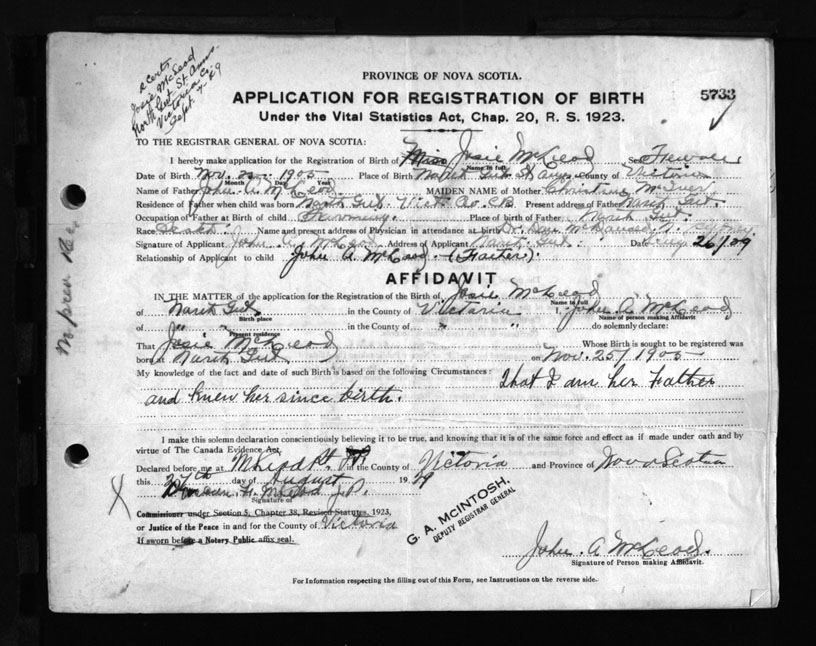 Josie McLeod
North Gut St. Anns
Victoria Co.
Sept. 4 - 49
PROVINCE OF NOVA SCOTIA.
5733
APPLICATION FOR REGISTRATION OF BIRTH
Under the Vital Statistics Act, Chap. 20, R. S. 1923.
TO THE REGISTRAR GENERAL OF NOVA SCOTIA:
I hereby make application for the Registration of Birth of Miss Josie McLeod Sex Female
Name in full
Date of Birth Nov. 25 1905 Place of Birth North Gut St Anns County of Victoria
Month Day Year
Name of Father John A. McLeod MAIDEN NAME of Mother Christina
Residence of Father when child was born North Gut Vict Co. C.B. Present address of Father North Gut.
Occupation of Father at Birth of child Farming. Place of birth of Father North Gut.
Race Scotch Name and present address of Physician in attendance at birth Dr.
Signature of Applicant John A. McLeod Address of Applicant North Gut. Date 26/29
Relationship of Applicant to child John A. McLeod - (Father).
AFFIDAVIT
IN THE MATTER of the application for the Registration of the Birth of Josie McLeod
Name in full
of North Gut. in the County of Victoria I, John A McLeod
Birth place Name of person making Affidavit
of " " in the County of " " do solemnly declare:
Present residence
That Josie McLeod Whose Birth is sought to be registered was
born at North Gut on Nov. 25/1905
My knowledge of the fact and date of such Birth is based on the following Circumstances: that I am her Father
and knew her since birth.
I make this solemn declaration conscientiously believing it to be true, and knowing that it is of the same force and effect as if made under oath and by
virtue of The Canada Evidence Act.
Declared before me at in the County of Victoria and Province of Nova Scotia
this 27th day of August 1929
J.P.
Signature of
Commissioner under Section 5, Chapter 38, Revised Statutes, 1923,
or Justice of the Peace in and for the County of Victoria
If sworn before a Notary Public affix seal.
G. A. McINTOSH,
DEPUTY REGISTRAR GENERAL
John A McLeod.
Signature of Person making Affidavit.
For Information respecting the filling out of this Form, see Instructions on the reverse side.